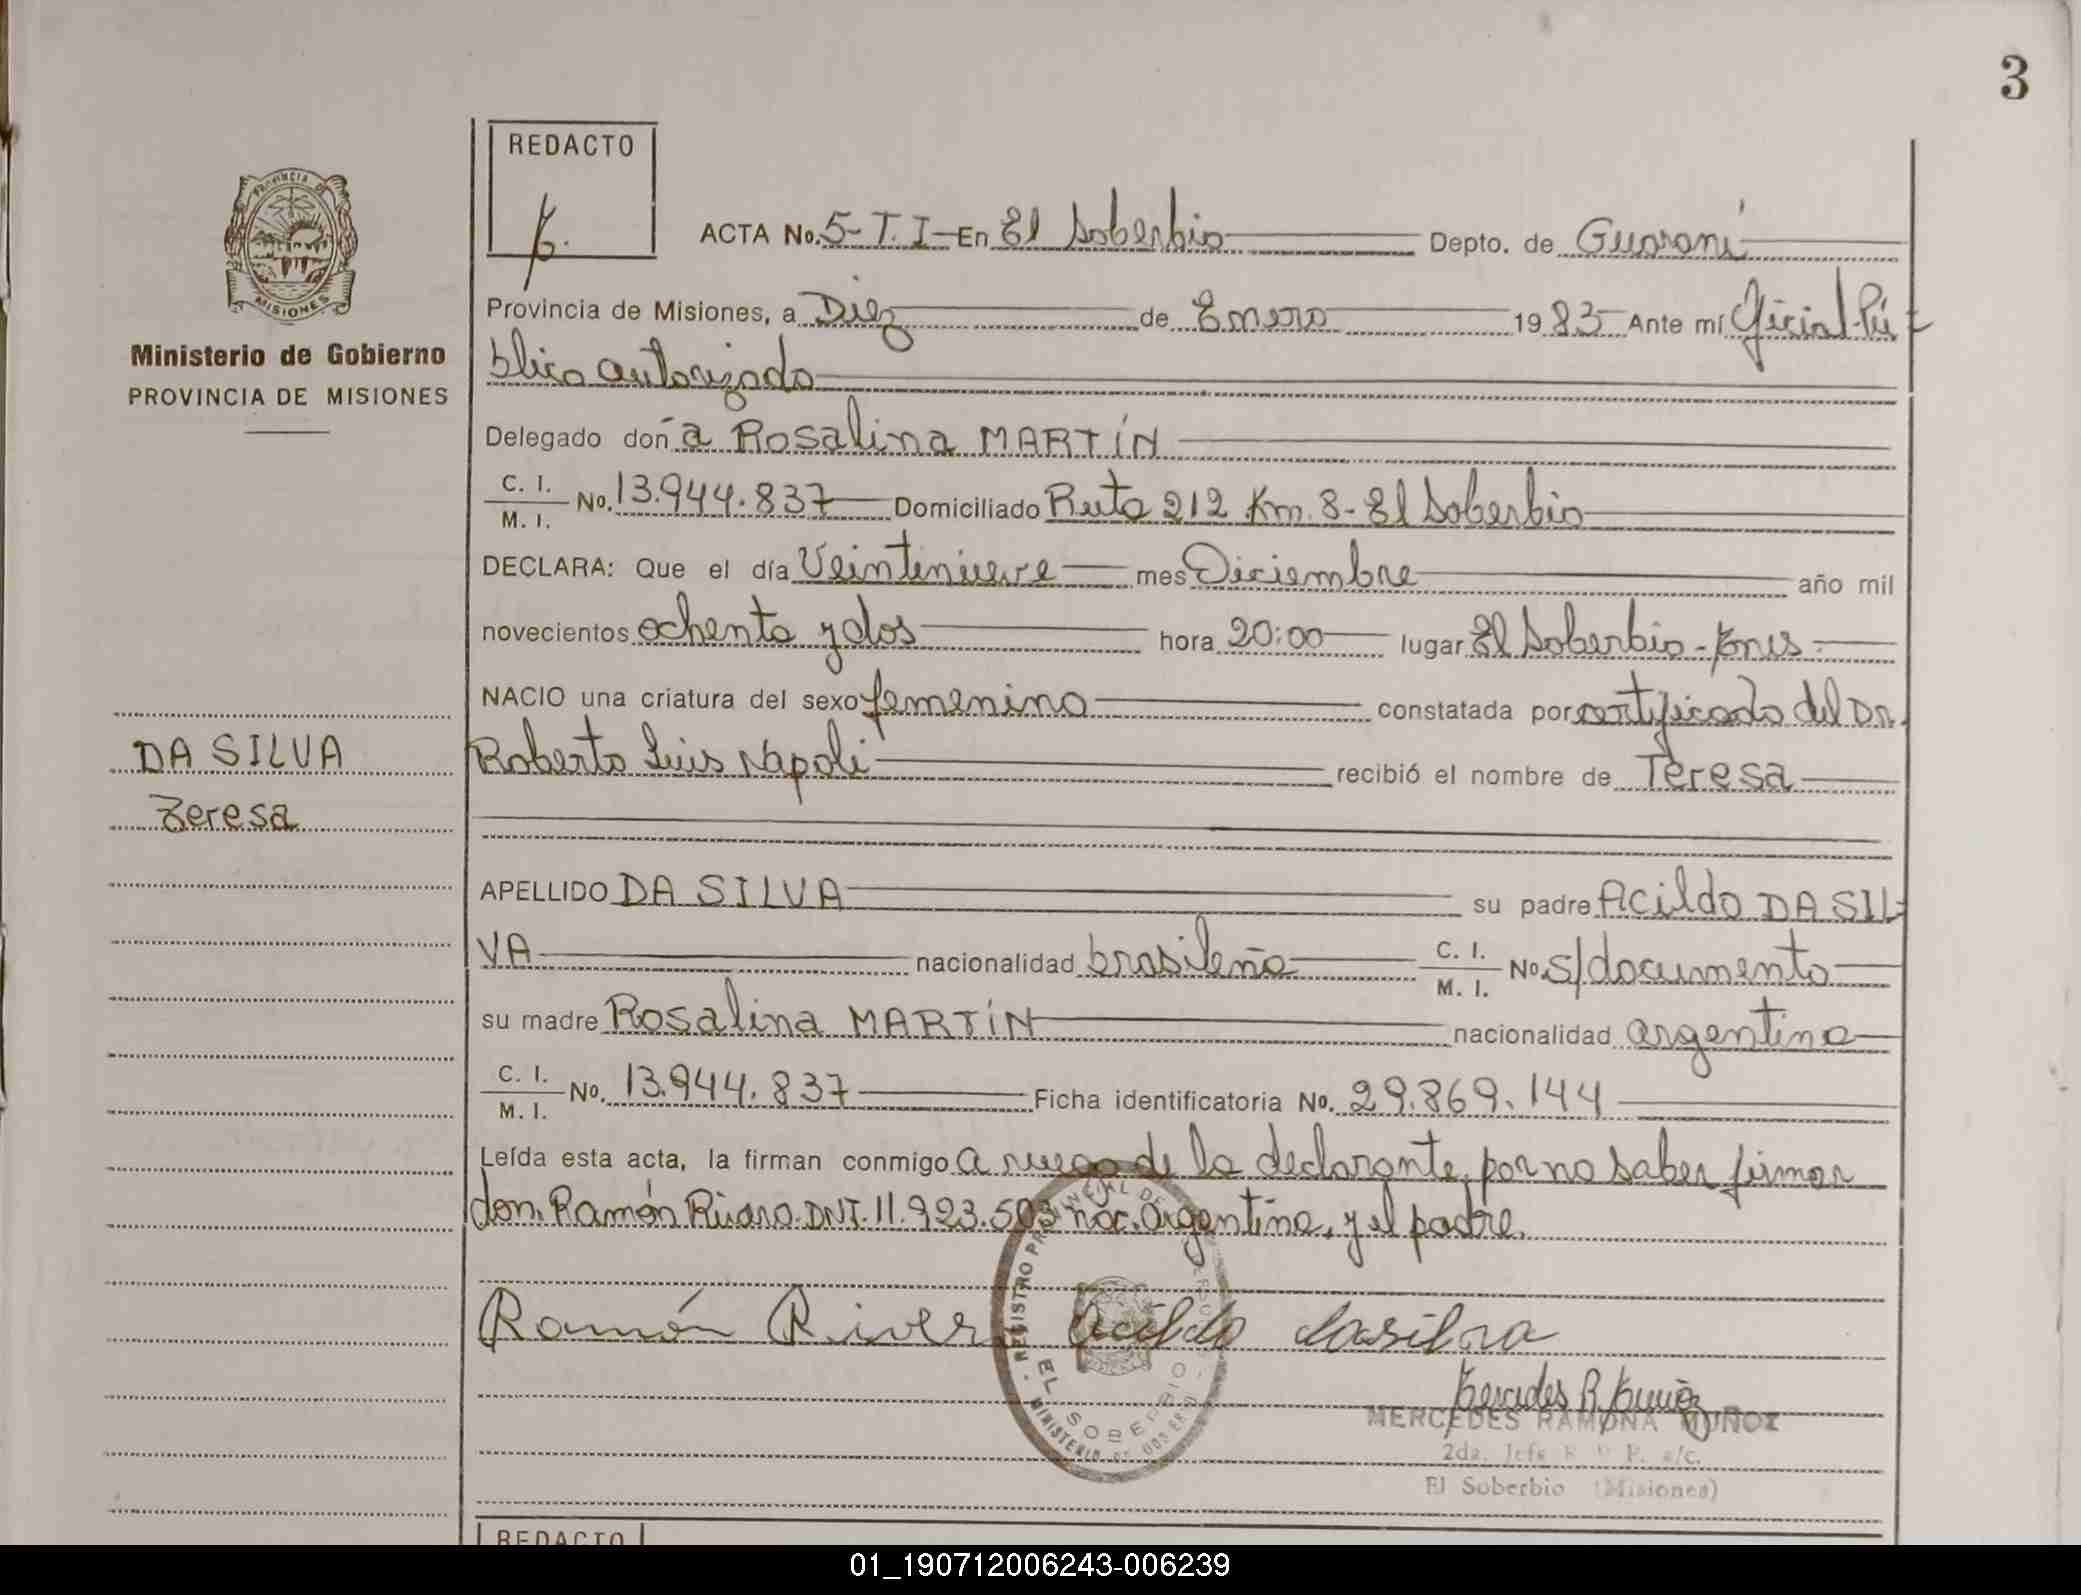 3
REDACTO
ACTA No. 5-T. I- En El Soberbio Depto. de Guaraní
Provincia de Misiones, a Diez de Enero 1983 Ante mí Oficial Pú-
blico autorizado
Ministerio de Gobierno
PROVINCIA DE MISIONES
Delegado doñ a Rosalina MARTÍN
C. I.
M. I. No. 13.944.837 Domiciliado Ruta 212 Km. 8- El Soberbio
DECLARA: Que el día Veintenueve mes Diciembre año mil
novecientos ochenta y dos hora 20:00 lugar El Soberbio-Mnes
NACIO una criatura del sexo femenino constatada por certificado del Dr.
Roberto Luis Napoli recibió el nombre de Teresa
DA SILVA
Teresa
APELLIDO DA SILVA su padre Acildo DA SIL-
VA nacionalidad brasileña C. I.
M. I. No. s/documento
su madre Rosalina MARTÍN nacionalidad argentina
C. I.
M. I. No. 13.944.837 Ficha identificatoria No. 29.869.144
Leída esta acta, la firman conmigo a ruego de la declarante, por no saber firmar
don. Ramón DNI. 11.923.503 nac. argentina, y el padre.
Ramón Acildo dasilva
REGISTRO PROVINCIAL DE
EL SOBERBIO
MINISTERIO DE GOBIERNO
Mercedes R. Muñoz
MERCEDES RAMONA MUÑOZ
2da. Jefe R. P. a/c.
El Soberbio (Misiones)
REDACTO
01_190712006243-006239